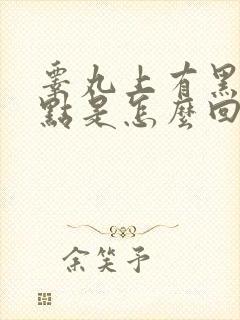 睪丸上有黑
點是怎麼回
余笑予